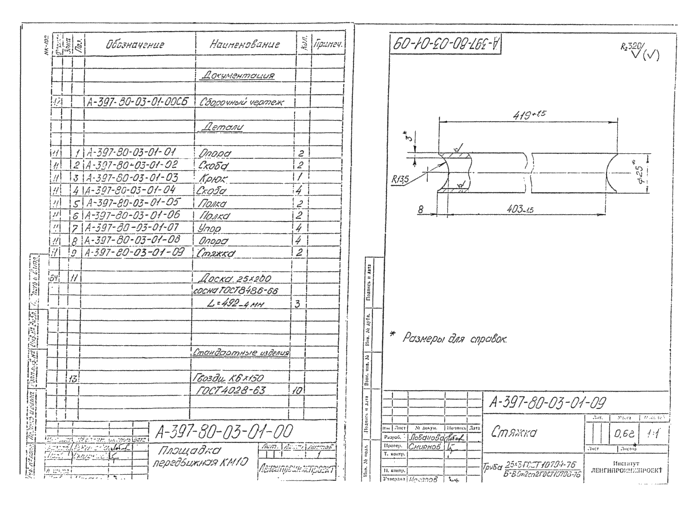 Обозначение Наименование Кол. Примеч.
Документация
А-397-80-03-01-00СБ Сборочный чертеж
Детали
11 1 А-397-80-03-01-01 Опора 2
11 2 А-397-80-03-01-02 Скоба 2
11 3 А-397-80-03-01-03 Крюк 1
11 4 А-397-80-03-01-04 Скоба 4
11 5 А-397-80-03-01-05 Полка 2
11 6 А-397-80-03-01-06 Полка 2
11 7 А-397-80-03-01-07 Упор 4
11 8 А-397-80-03-01-08 Опора 4
11 9 А-397-80-03-01-09 Стяжка 2
БЧ 11 Доска 25х200
сосна ГОСТ8486-66
L=492-4 мм 3
Стандартные изделия
13 Гвозди К6х150
ГОСТ4028-63 10
А-397-80-03-01-00
Площадка
передвижная КМ10
А-397-80-03-01-09
Rz320/ √(√)
419+1.5
3*
R13,5
8
403-1.5
⌀25*
* Размеры для справок
Подпись и дата
Инв. № дубл.
Взам. инв. №
Подпись и дата
Инв. № подл.
А-397-80-03-01-09
Стяжка
0,68 1:1
Лист № докум. Подпись Дата
Разраб. Лобанова
Провер. Смирнов
Т. контр.
Н. контр.
Лист Листов
Труба
Институт
ЛЕНГИПРОИНЖПРОЕКТ